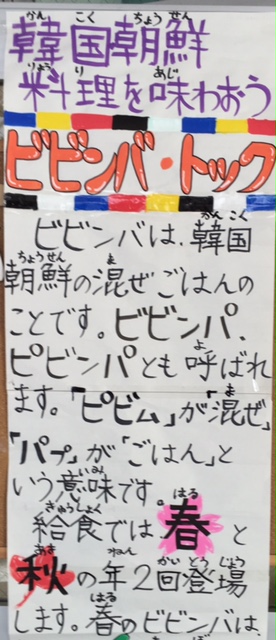 韓国朝鮮
料理を味わおう
ビビンバ・トック
ビビンバは、韓国
朝鮮の混ぜごはんの
ことです。ビビンパ、
ピビンパとも呼ばれ
ます。「ピビム」が「混ぜ」
「パプ」が「ごはん」と
いう意味です。
給食では春と
秋の年2回登場
します。春のビビンバは